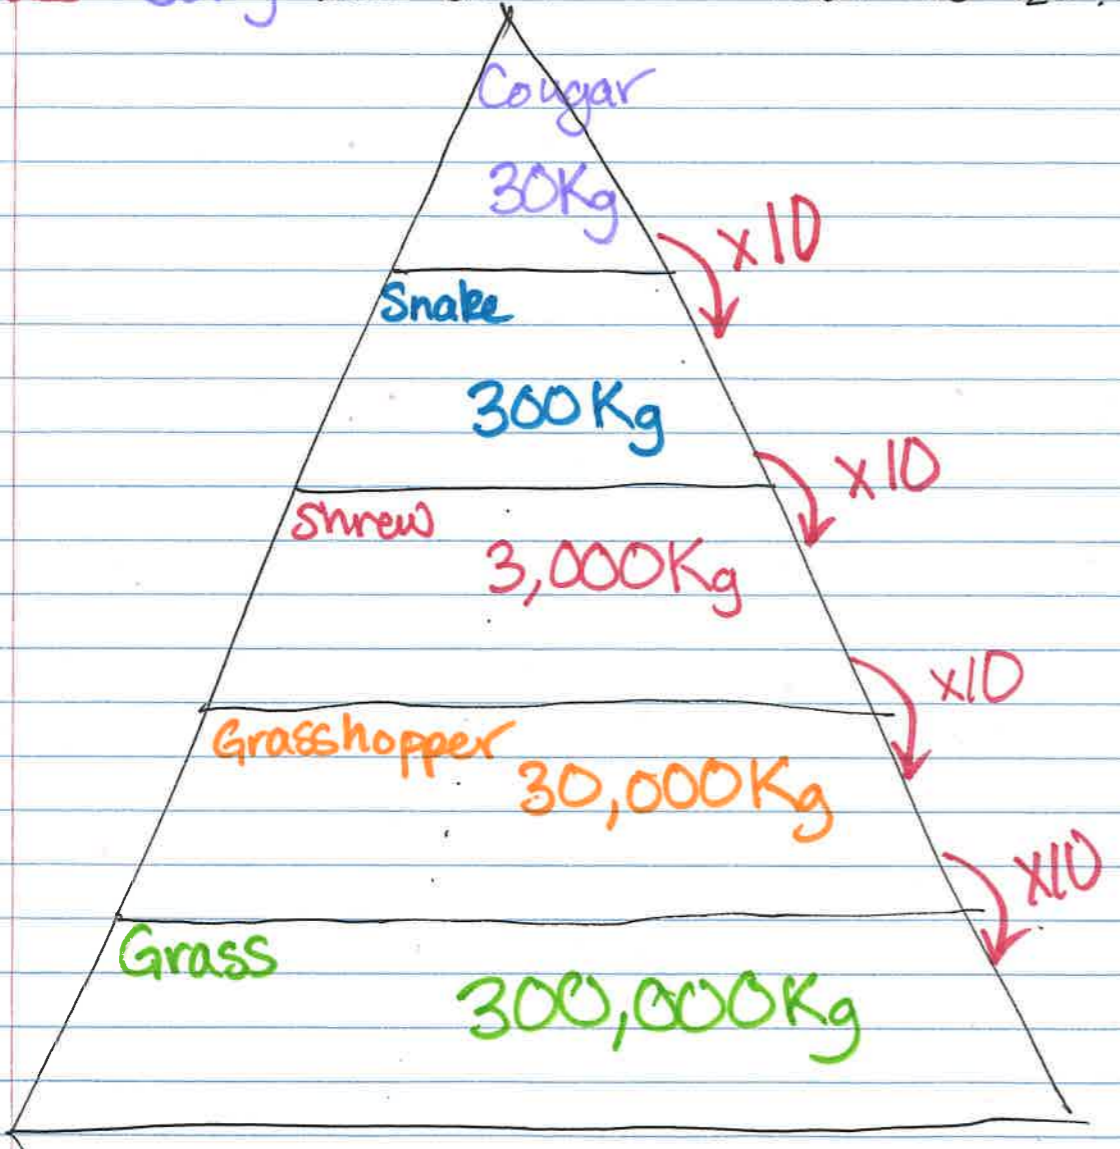 Cougar
30Kg
x10
Snake
300Kg
x10
Shrew
3,000Kg
x10
Grasshopper
30,000Kg
x10
Grass
300,000Kg